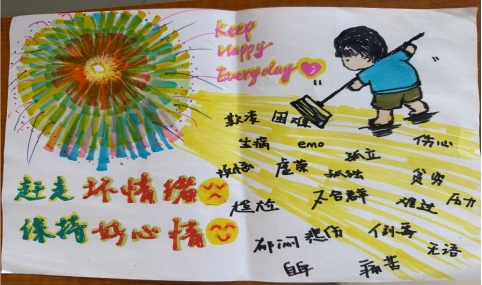 Keep
Happy
Everyday
赶走坏情绪
保持好心情
困难
生病 emo 孤立 伤心
虚荣 孤独 贫穷
尴尬 不合群 难过 压力
郁闷 悲伤 倒霉 无语
自卑 痛苦